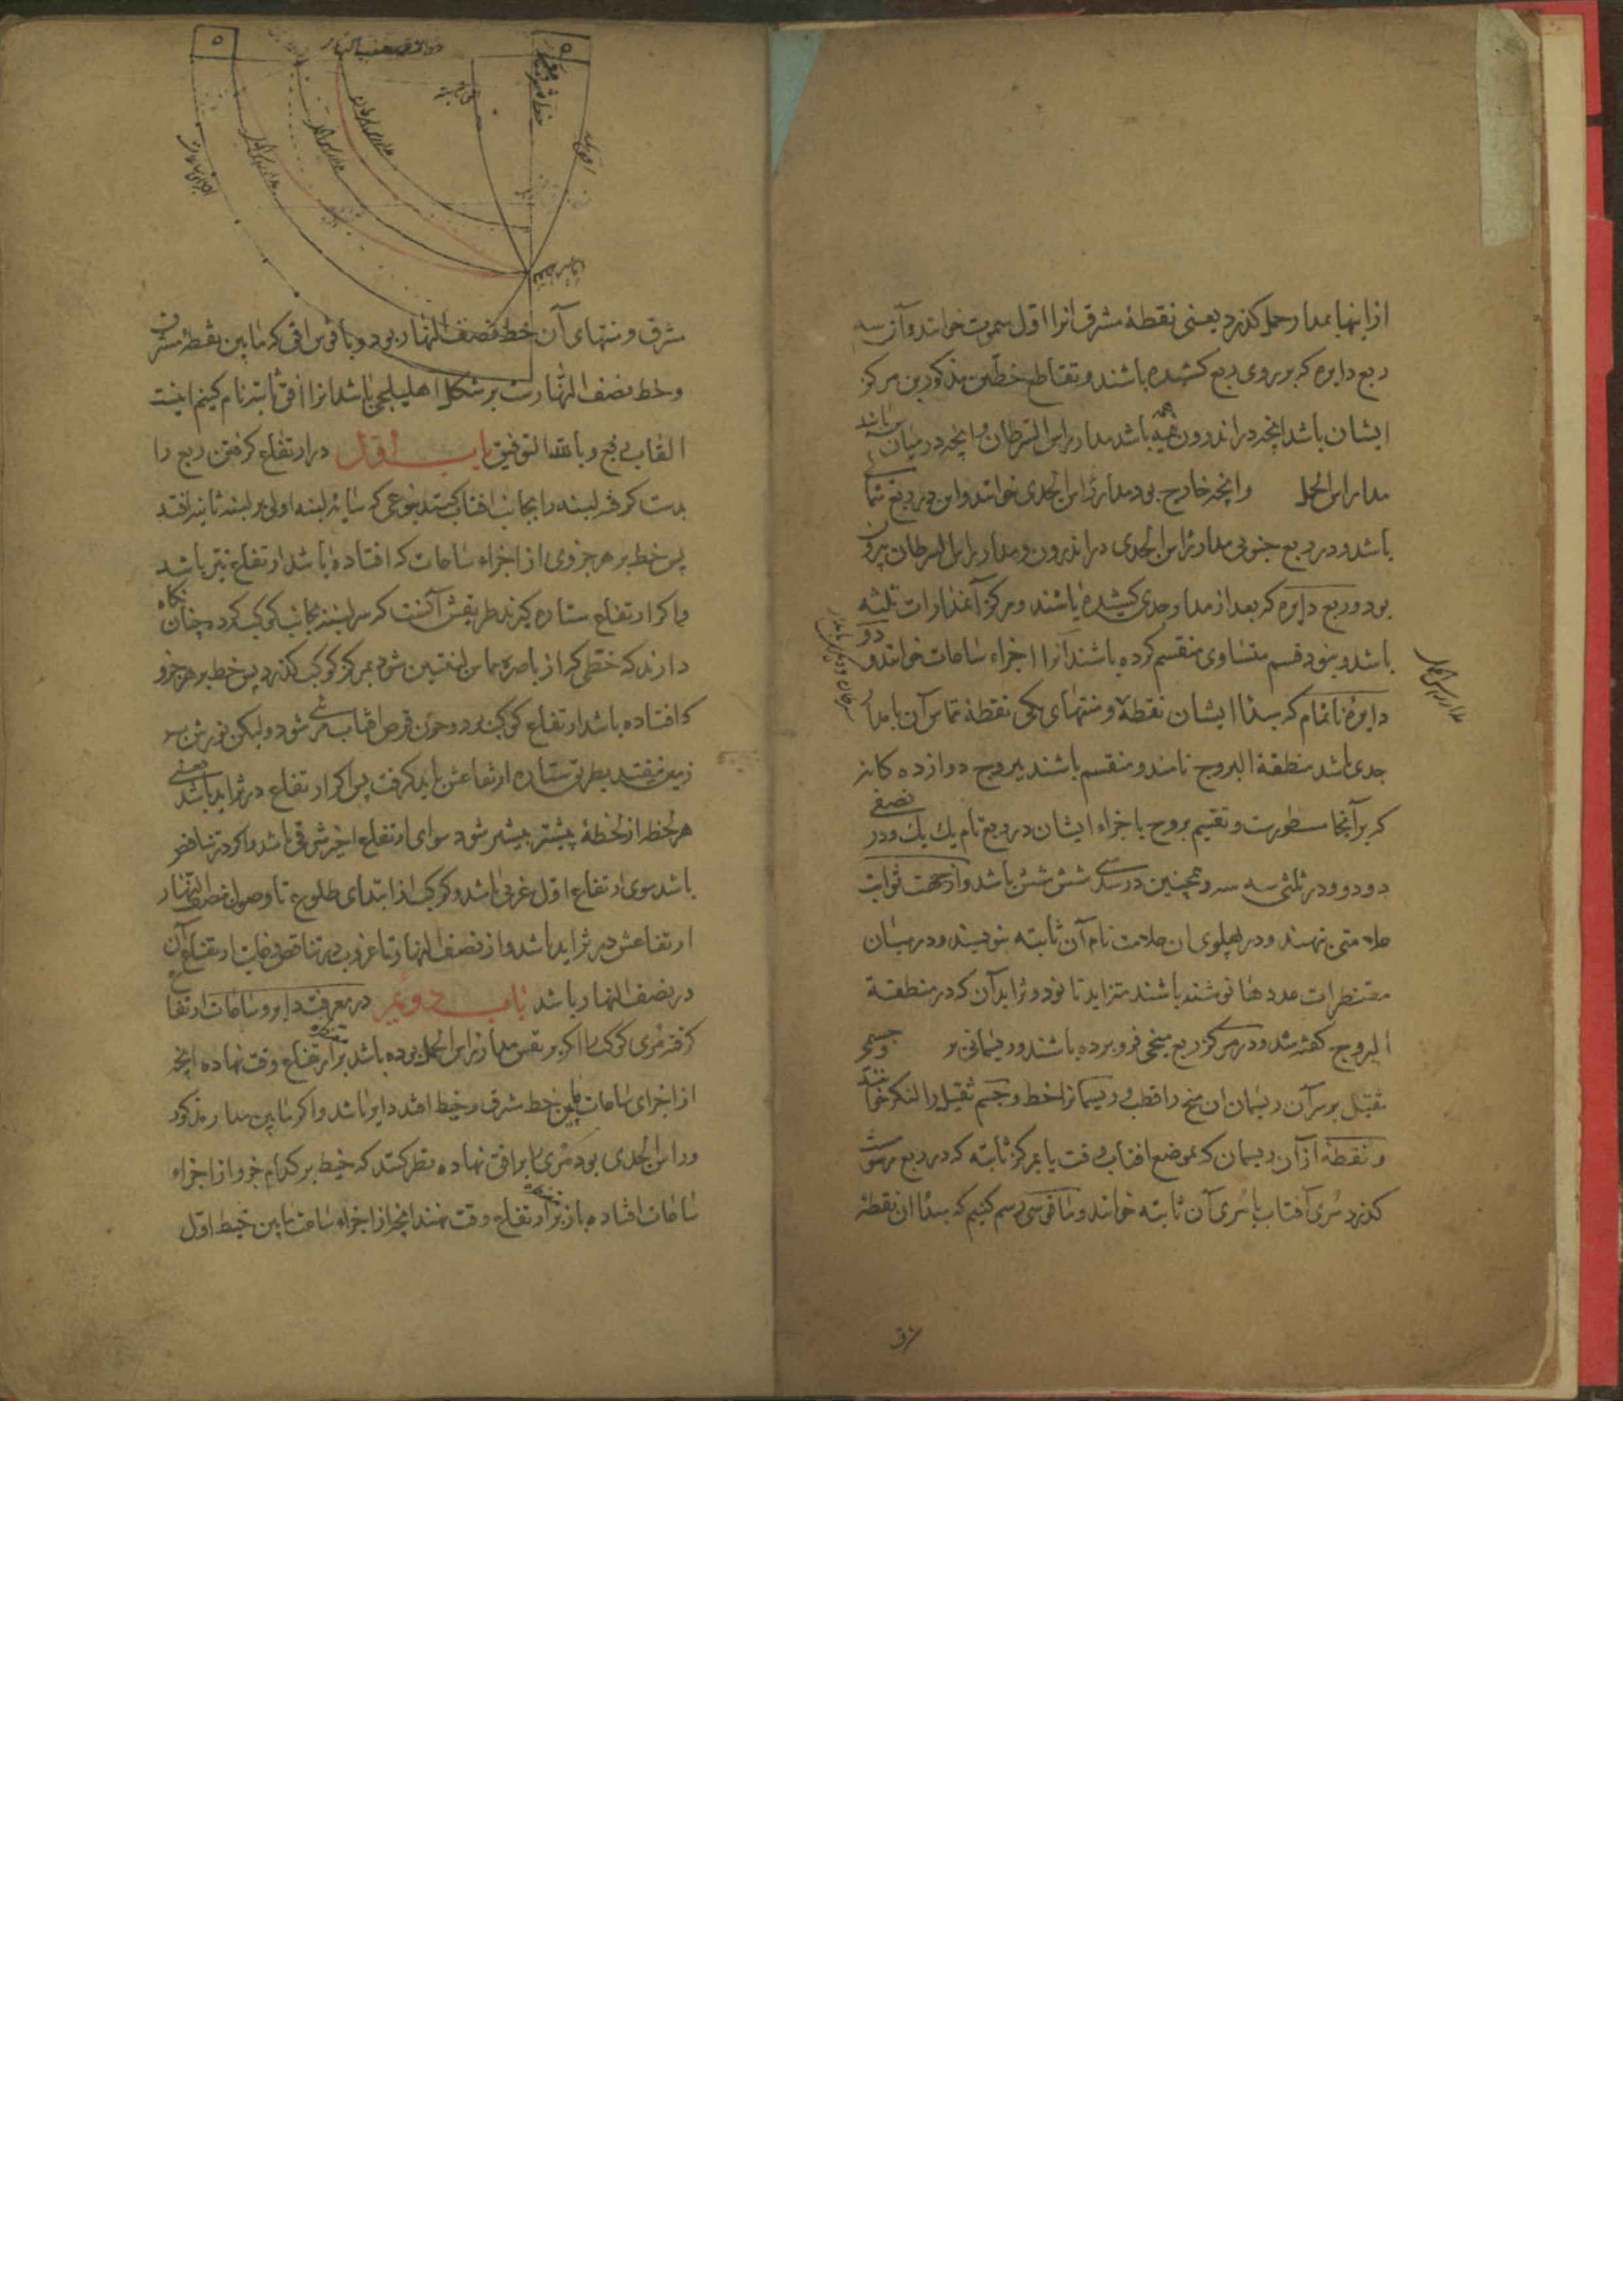 از اینها بمدار حمل کذرد یعنی نقطهٔ مشرق انرا اول سموت خوانند و آن سه
ربع دایره که بر روی ربع کشیده باشند و تقاطع خطین مذکورین مرکز
ایشان باشد انچه در اندرون همه باشد مدار راس السرطان و انچه در میان باشد
مدار راس الحمل و انچه خارج بود مدار راس الجدی خوانند و این در ربع شمالی
باشد و در ربع جنوبی مدار راس الجدی در اندرون و مدار راس السرطان بیرون
بود و ربع دایره که بعد از مدار جدی کشیده باشند و مرکز آن مدارات ثلثه
باشد و بنود قسم متساوی منقسم کرده باشند آنرا اجزاء ساعات خوانند و دو
دایرهٔ ناتمام که مبدٲ ایشان نقطهٔ و منتهای یکی نقطهٔ تماس آن بامدار
جدی باشد منطقة البروج نامند و منقسم باشند ببروج دوازده کانه
که بر آنجا مسطورست و تقسیم بروج باجزاء ایشان در ربع تام یک یک و در نصفی
دو دو و در ثلثی سه سه و همچنین در سدسی شش شش باشد و از جهت ثوابت
علامتی نهند و در پهلوی ان علامت نام آن ثابته بنویسند و در میان
مقنطرات عددها نوشته باشند متزاید تا نود و تزاید آن که در منطقة
البروج کفته شد و در مرکز ربع میخی فرو برده باشند و ریسمانی بر و جسمی
ثقیل بر سر آن ریسمان ان میخ را قطب و ریسمانرا خط و جسم ثقیل را لنکر خوانند
و نقطهٔ از آن ریسمان که بموضع افتاب وقت یا بمرکز ثابته که در ربع مرسومست
کذرد مُری آفتاب یا مُری آن ثابته خوانند و ما قوسی رسم کنیم که مبدٲ ان نقطهٔ
مدار راس الحمل
شرق
خط مشرق و مغرب
مشرق و منتهای آن خط نصف النهار بود و با قوس افقی که مابین نقطهٔ مشرق
و خط نصف النهارست بر شکل اهلیلجی باشد انرا افق ثابته نام کنیم اینست
القاب ربع و بالله التوفیق باب اول در ارتفاع کرفتن ربع را
بدست کرفته لبنه را بجانب افتاب کنند بنوعی که سایهٔ لبنه اولی بر لبنه ثانیه افتد
پس خط بر هر جزوی از اجزاء ساعات که افتاده باشد ارتفاع نیر باشد
و اکر ارتفاع ستاره کیرند طریقش آنست که سر لبنه بجانب کوکب کرده چنان نکاه
دارند که خطی که از باصره مماس لبنتین شود بمرکز کوکب کذرد پس خط بر هر جزو
که افتاده باشد ارتفاع کوکب بود و چون قرص افتاب مرئی شود و لیکن نورش بر
زمین نیفتد بطریق ستاره ارتفاعش باید کرفت پس اکر ارتفاع در تزاید باشد یعنی
هر لحظه از لحظهٔ پیشتر بیشتر شود سوای ارتفاع اخیر شرقی باشد و اکر در تناقص
باشد سوی ارتفاع اول غربی باشد و کوکب از ابتدای طلوع تا وصول نصف النهار
ارتفاعش در تزاید باشد و از نصف النهار تا غروب در تناقص و غایت ارتفاع آن
در نصف النهار باشد باب دویم در معرفت دایر و ساعات ارتفاع
کرفته مُری کوکب را اکر بر نفس مدار راس الحمل بوده باشد بر مقنطره ارتفاع وقت نهاده انچه
از اجزای ساعات مابین خط مشرق و خیط افتد دایر باشد و اکر مابین مدار مذکور
و راس الجدی بود مُری را بر افق نهاده نظر کنند که خیط بر کدام جزو از اجزاء
ساعات افتاده باز بر مقنطره ارتفاع وقت نهند انچه از اجزاء ساعت مابین خیط اول